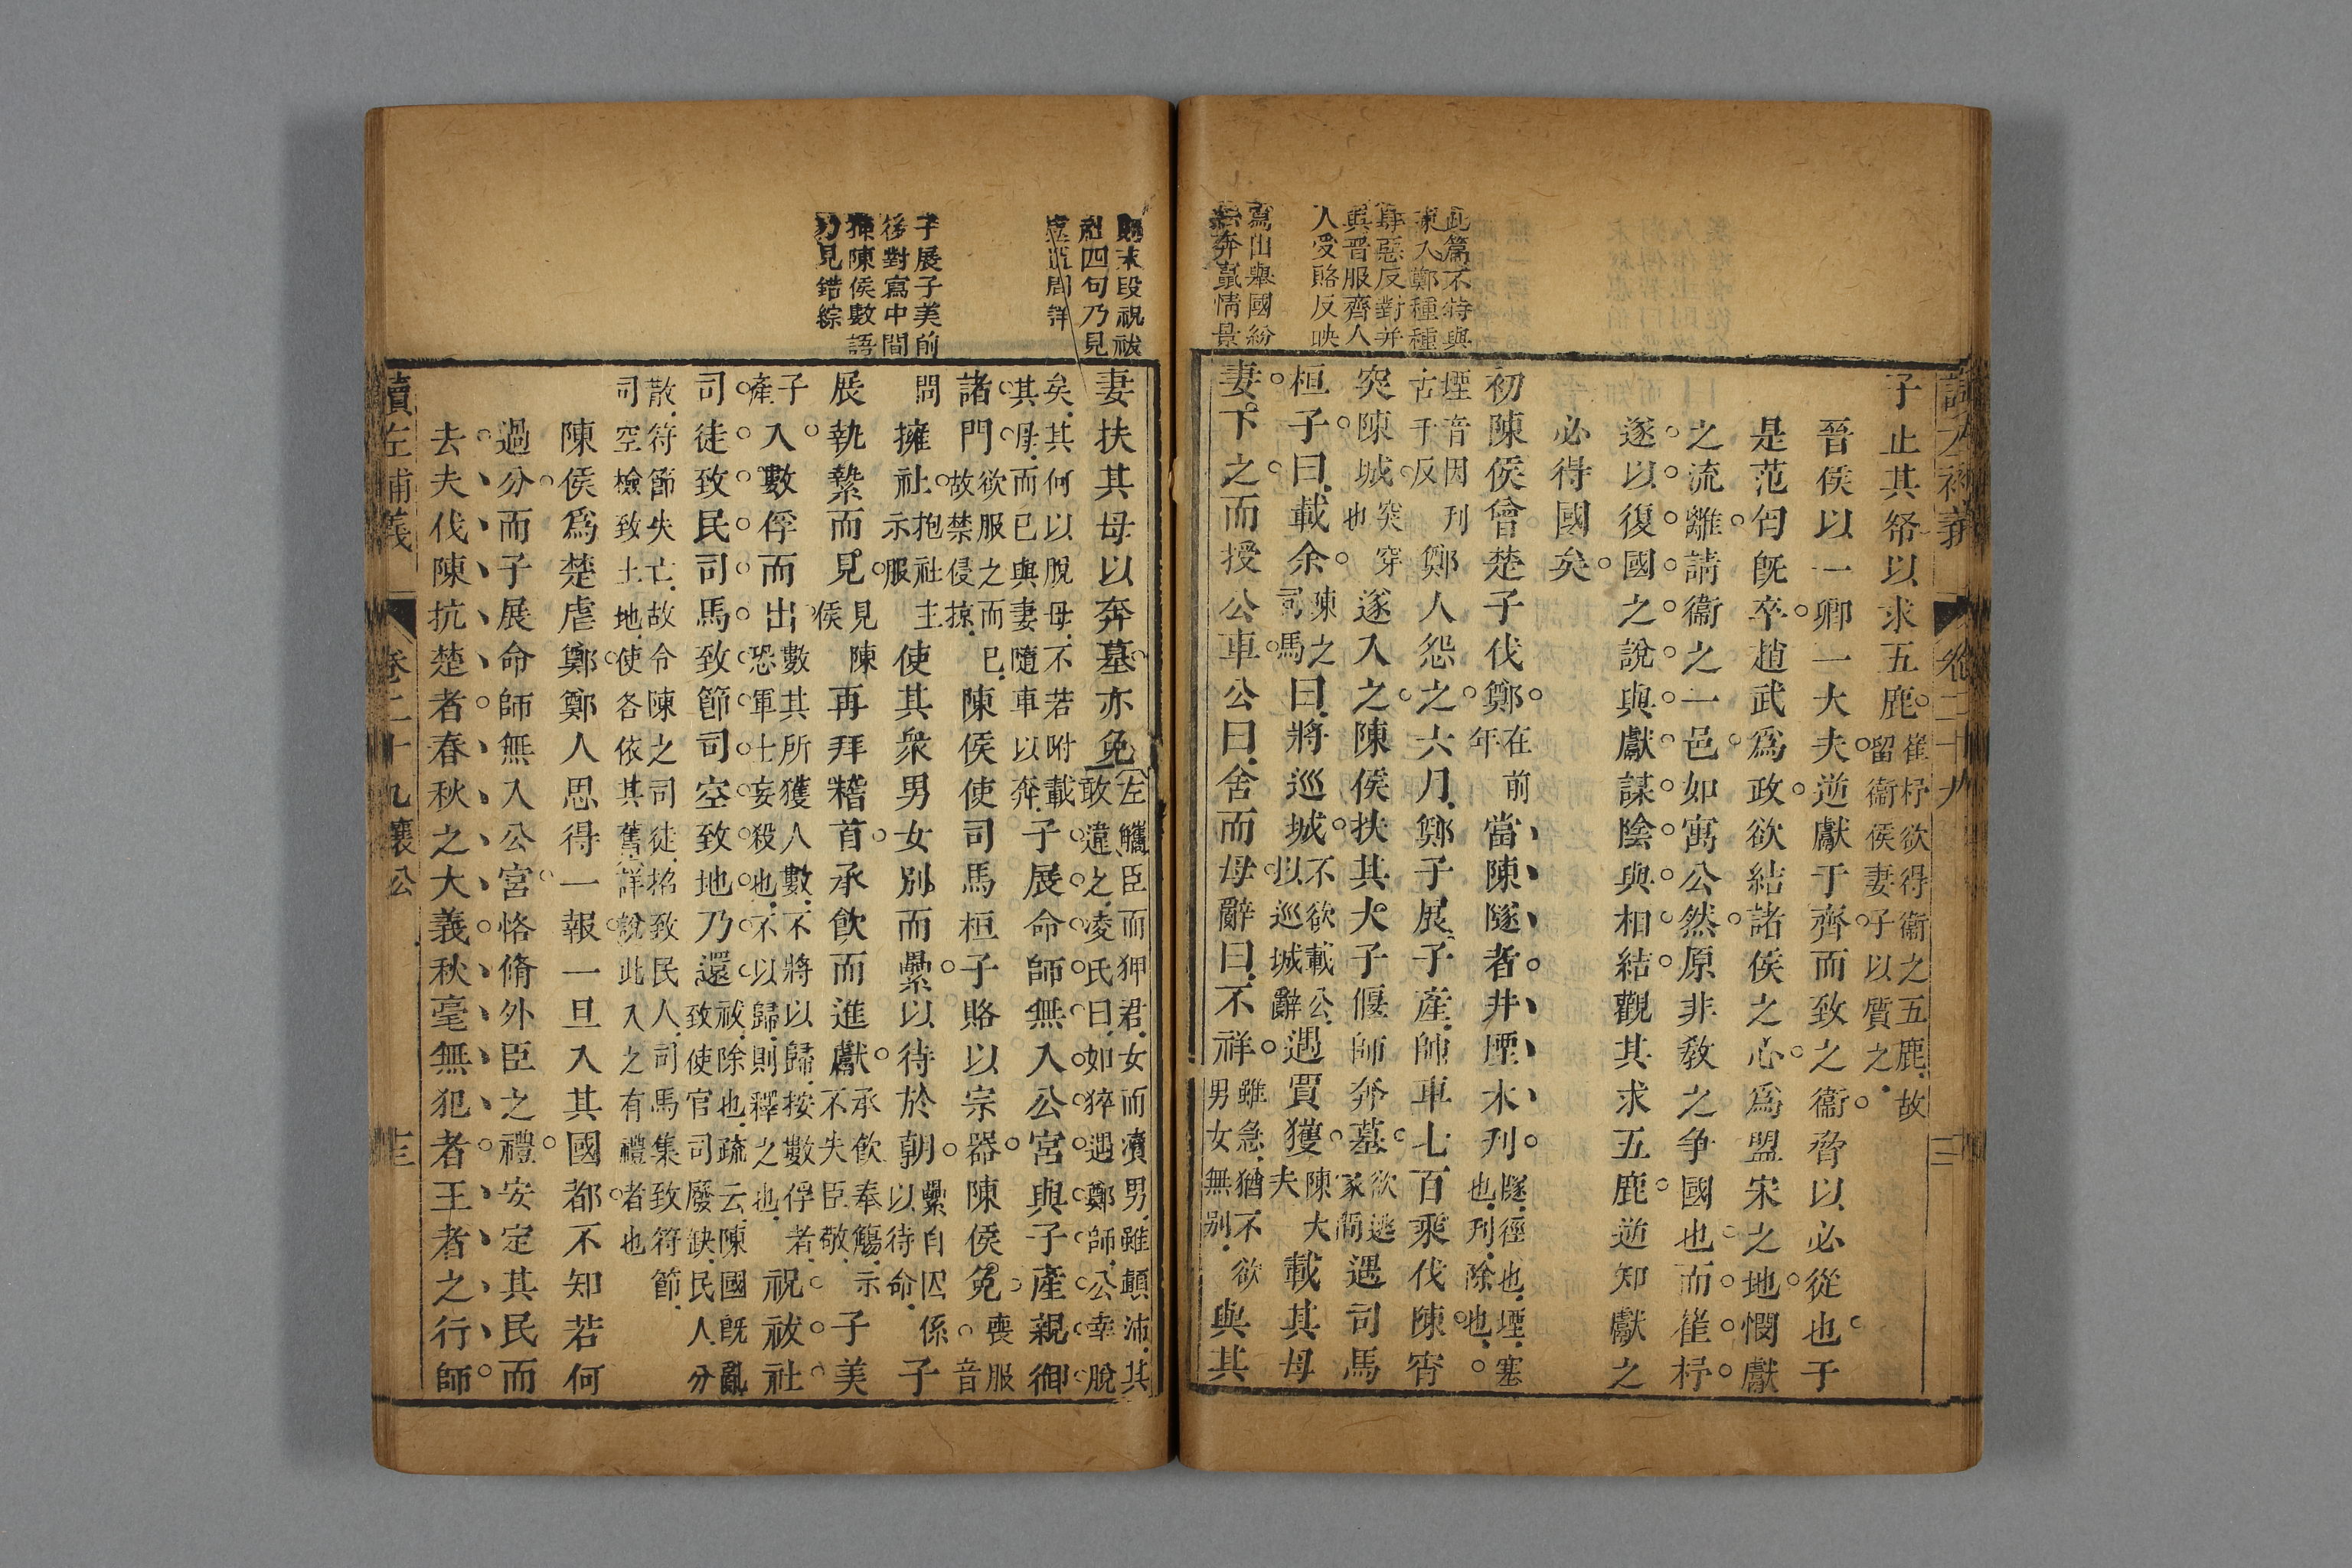 讀左補義 卷二十九 三
此篇不特與
入鄭種種
肆惡反對并
與晉服齊人
人受賂反映
寫出舉國紛
紛奔竄情景
子止其帑以求五鹿崔杼欲得衞之五鹿故留衞侯妻子以質之
晉侯以一卿一大夫逆獻于齊而致之衞脅以必從也于
是范匄既卒趙武爲政欲結諸侯之心爲盟宋之地憫獻
之流離請衞之一邑如寓公然原非教之争國也而崔杼
遂以復國之說與獻謀陰與相結觀其求五鹿逆知獻之
必得國矣
初陳侯會楚子伐鄭在前年當陳隧者井堙木刋隧徑也堙塞也刋除也
堙音因刋古干反鄭人怨之六月鄭子展子產帥車七百乘伐陳宵
突陳城突穿也遂入之陳侯扶其大子偃師奔墓欲逃冢間遇司馬
桓子曰載余陳之司馬曰將巡城不欲載公以巡城辭遇賈獲陳大夫載其母
妻下之而授公車公曰舍而母辭曰不祥雖急猶不欲男女無別與其
末段祝祓
社四句乃見
處置周詳
子展子美前
後對寫中間
揷陳侯數語
方見錯綜
妻扶其母以奔墓亦免左驪臣而狎君女而瀆男雖顛沛其敢違之凌氏曰如猝遇鄭師公幸脫
矣其何以脫母不若附載其母而已與妻隨車以奔子展命師無入公宮與子產親御
諸門欲服之而已故禁侵掠陳侯使司馬桓子賂以宗器陳侯免喪服音
問擁社抱社主示服使其衆男女別而纍以待於朝纍自囚係以待命子
展執縶而見見陳侯再拜稽首承飲而進獻承飲奉觴示不失臣敬子美
子產入數俘而出數其所獲人數不將以歸按數俘者恐軍士妄殺也不以歸則釋之也祝祓社
司徒致民司馬致節司空致地乃還祓除也疏云陳國既亂致使官司廢缺民人分
散符節失亡故令陳之司徒招致民人司馬集致符節司空檢致土地使各依其舊詳說此入之有禮者也
陳侯爲楚虐鄭鄭人思得一報一旦入其國都不知若何
過分而子展命師無入公宮恪脩外臣之禮安定其民而
去夫伐陳抗楚者春秋之大義秋毫無犯者王者之行師
讀左補義 卷二十九 襄公 三